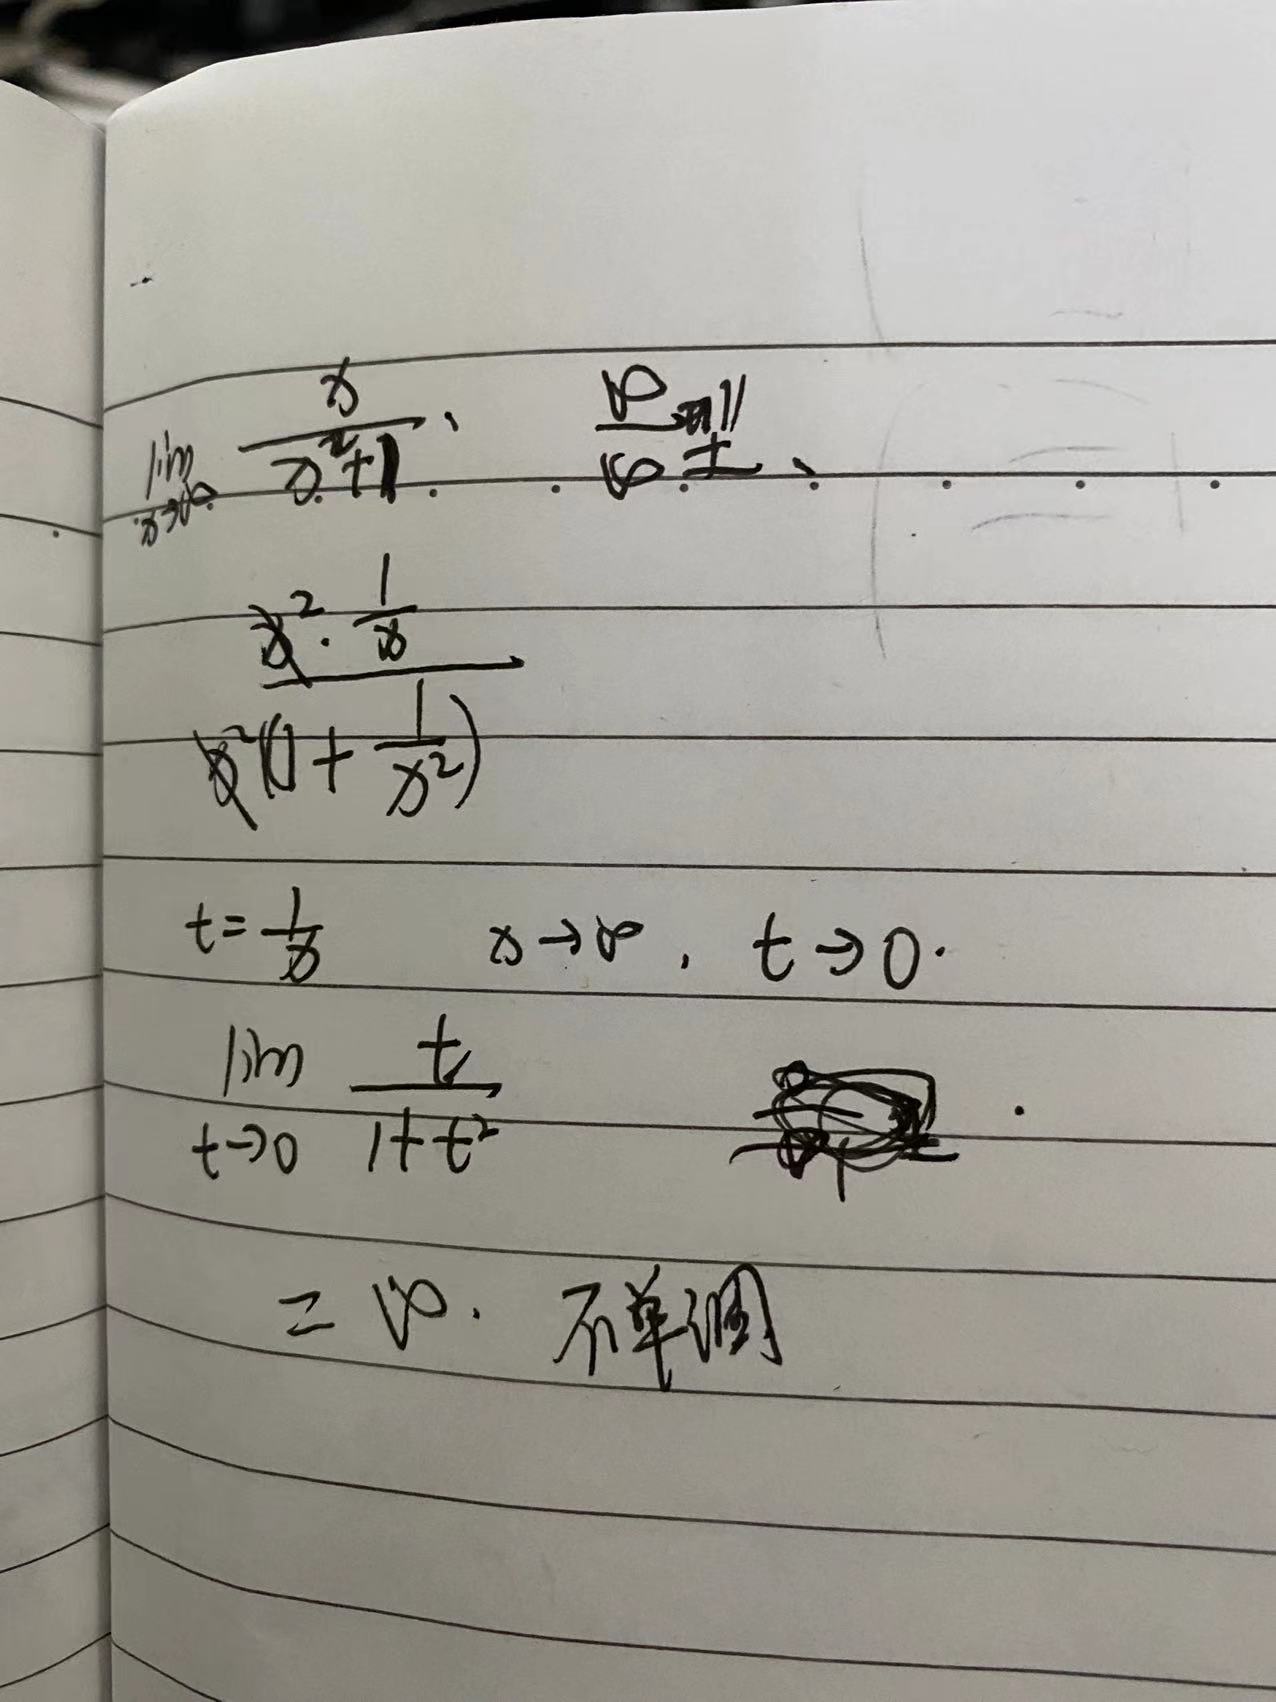 lim x→∞ x/(x²+1)、 ∞/∞
x²·1/x
x²(1+1/x²)
t=1/x x→∞, t→0.
lim t→0 t/(1+t²)
=∞. 不单调